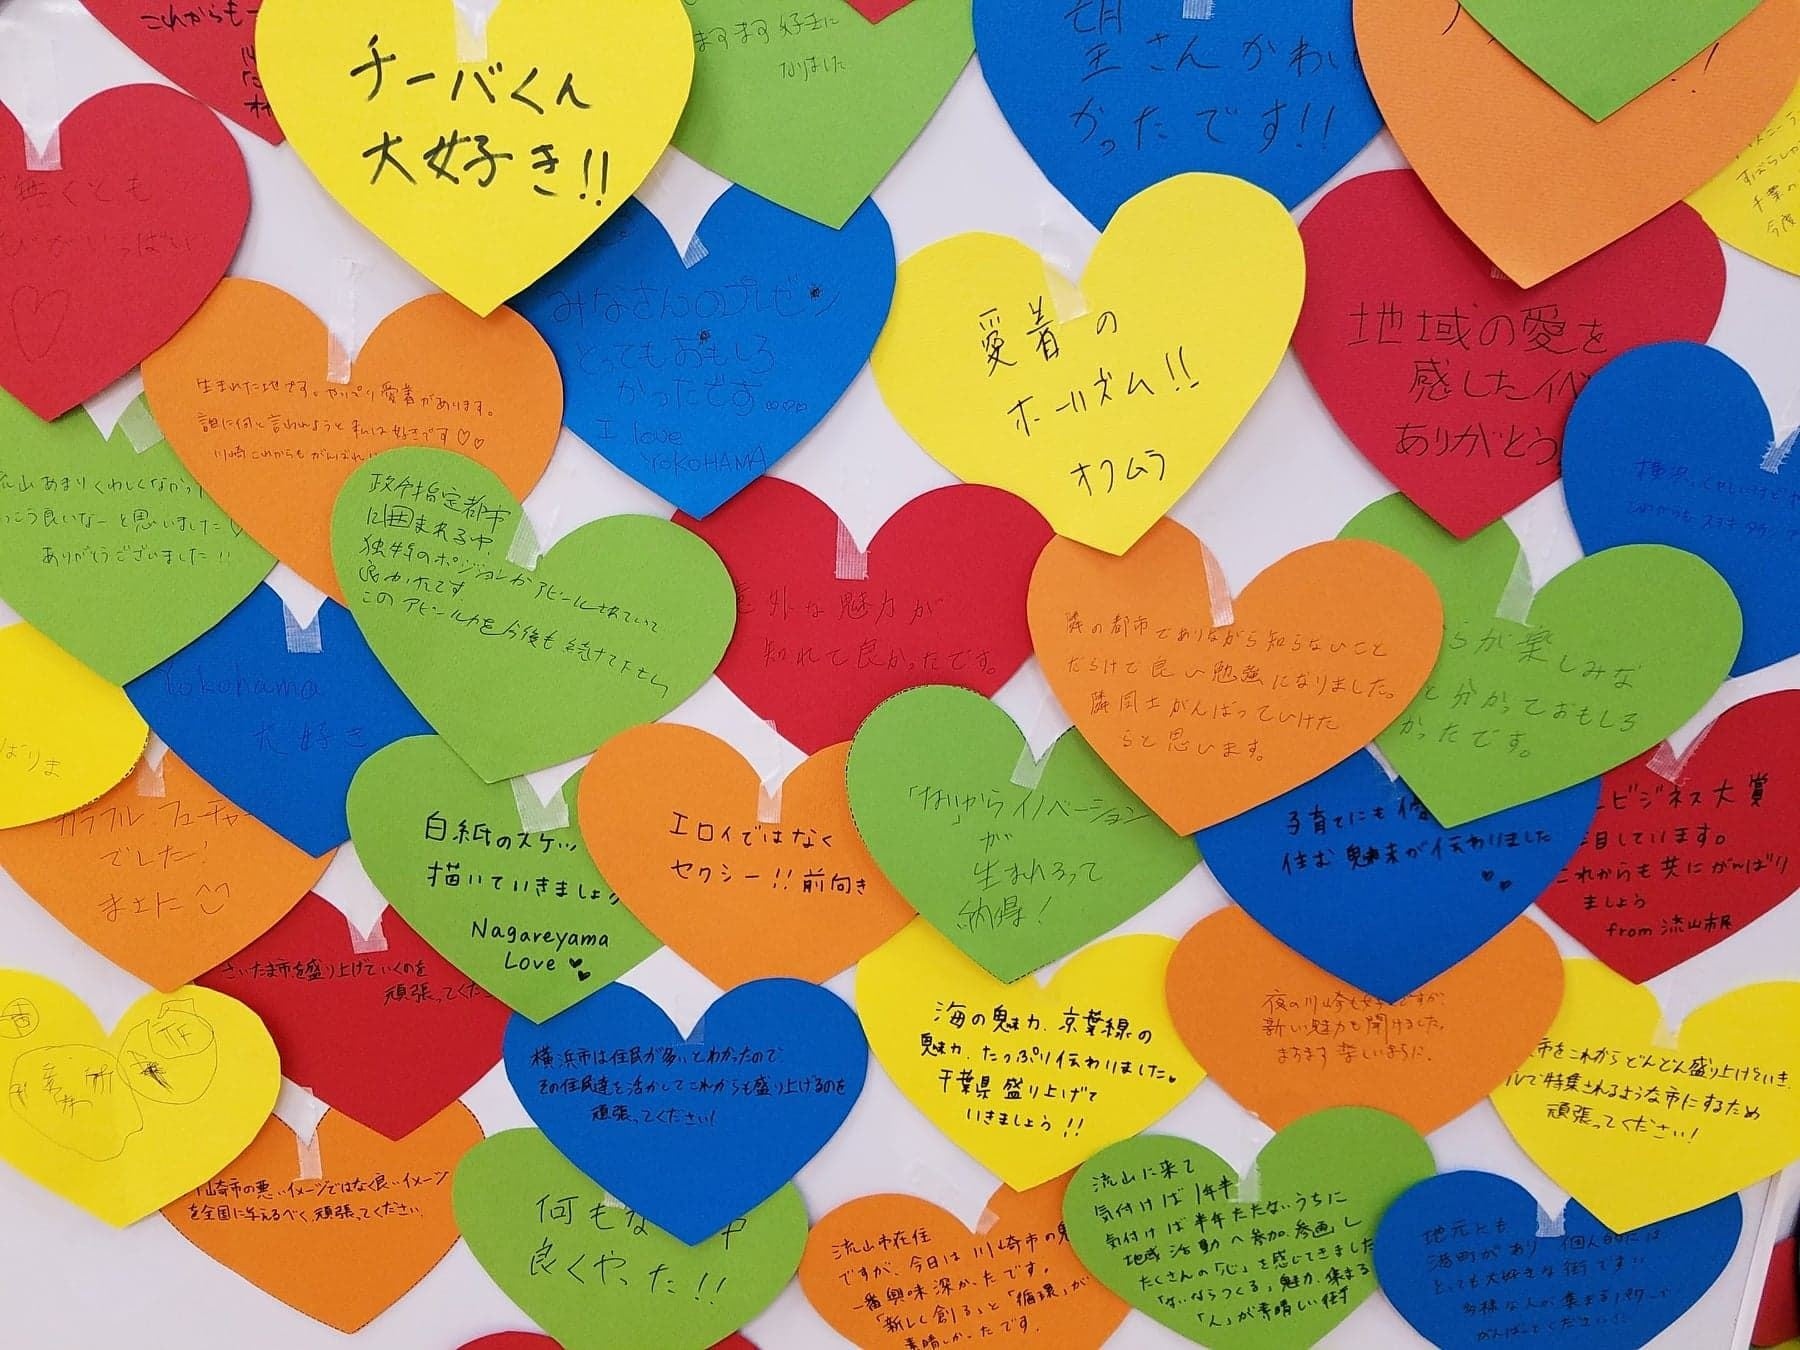 これからも
チーバくん
大好き!!
ますます好きに
なりました
望さんかわい
かったです!!
無くとも
がいっぱい
みなさんのプレゼン
とってもおもしろ
かったです
I love
YOKOHAMA
愛着の
ホールズム!!
オクムラ
地域の愛を
感じた
ありがとう
生まれた地です。やっぱり愛着があります。
誰に何と言われようと私は好きです♡♡
川崎これからもがんばれ
流山あまりくわしくなかっ
こう良いなーと思いました♡
ありがとうございました!!
政令指定都市
に囲まれる中
独特のポジションがアピールされていて
良かったです
このアピール力を今後も続けて下さい
意外な魅力が
知れて良かったです。
隣の都市でありながら知らないこと
だらけで良い勉強になりました。
隣同士がんばっていけた
らと思います。
らが楽しみな
と分かっておもしろ
かったです。
Yokohama
大好き
ばりま
カラフル フューチャー
でした!
白紙のスケッ
描いていきましょ
Nagareyama
Love ♥♥
エロイではなく
セクシー!!前向き
「ない」からイノベーション
が
生まれるって
納得!
子育てにも
住む魅力が伝わりました
♥♥
ービジネス大賞
目しています。
これからも共にがんばり
ましょう
from 流山市民
さいたま市を盛り上げていくのを
頑張ってくださ
横浜市は住民が多いとわかったので
その住民達を活かしてこれからも盛り上げるのを
頑張ってください!
海の魅力、京葉線の
魅力、たっぷり伝わりました♥
千葉県盛り上げて
いきましょう!!
夜の川崎も好きですが、
新しい魅力も聞けました。
ますます楽しいまちに。
市をこれからどんどん盛り上げていき
ルで特集されるような市にするため
頑張ってください!
川崎市の悪いイメージではなく良いイメージ
を全国に与えるべく頑張ってください
何もな 中
良くやった!!
流山市在住
ですが、今日は川崎市の
一番興味深かったです。
「新しく創る」と「循環」が
素晴しかったです。
流山に来て
気付けば1年半
気付けば半年たたないうちに
地域活動へ参加、参画し
たくさんの「心」を感じてきました
「ないならつくる」魅力、集まる
「人」が素晴しい街
地元とも
港町があり 個人的には
とっても大好きな街です
多様な人が集まるパワーで
がんばってください